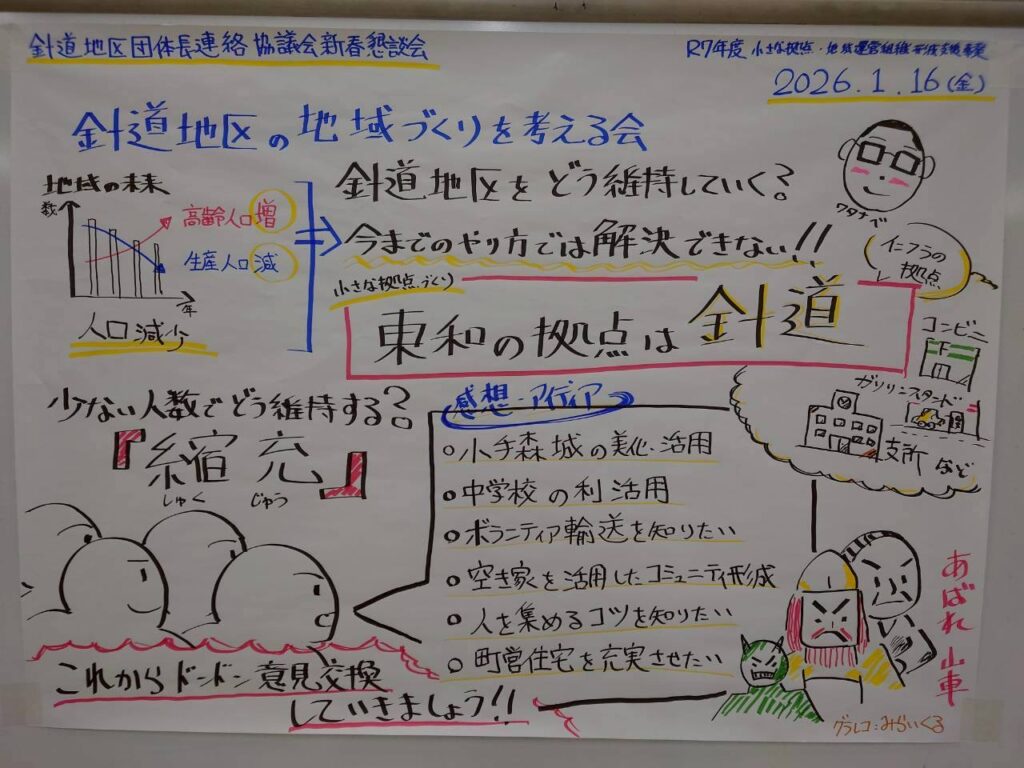 針道地区団体長連絡協議会新春懇談会
R7年度 小さな拠点・地域運営組織形成支援事業
2026.1.16(金)
針道地区の地域づくりを考える会
地域の未来
数
高齢人口増
生産人口減
年
人口減少
針道地区をどう維持していく?
今までのやり方では解決できない!!
小さな拠点づくり
東和の拠点は針道
ワタナベ
インフラの
拠点
コンビニ
ガソリンスタンド
支所 など
少ない人数でどう維持する?
『縮充』
しゅく じゅう
感想・アイディア
○小手森城の美化・活用
○中学校の利活用
○ボランティア輸送を知りたい
○空き家を活用したコミュニティ形成
○人を集めるコツを知りたい
○町営住宅を充実させたい
これからドンドン意見交換
していきましょう!!
あばれ山車
グラレコ:みらいくる